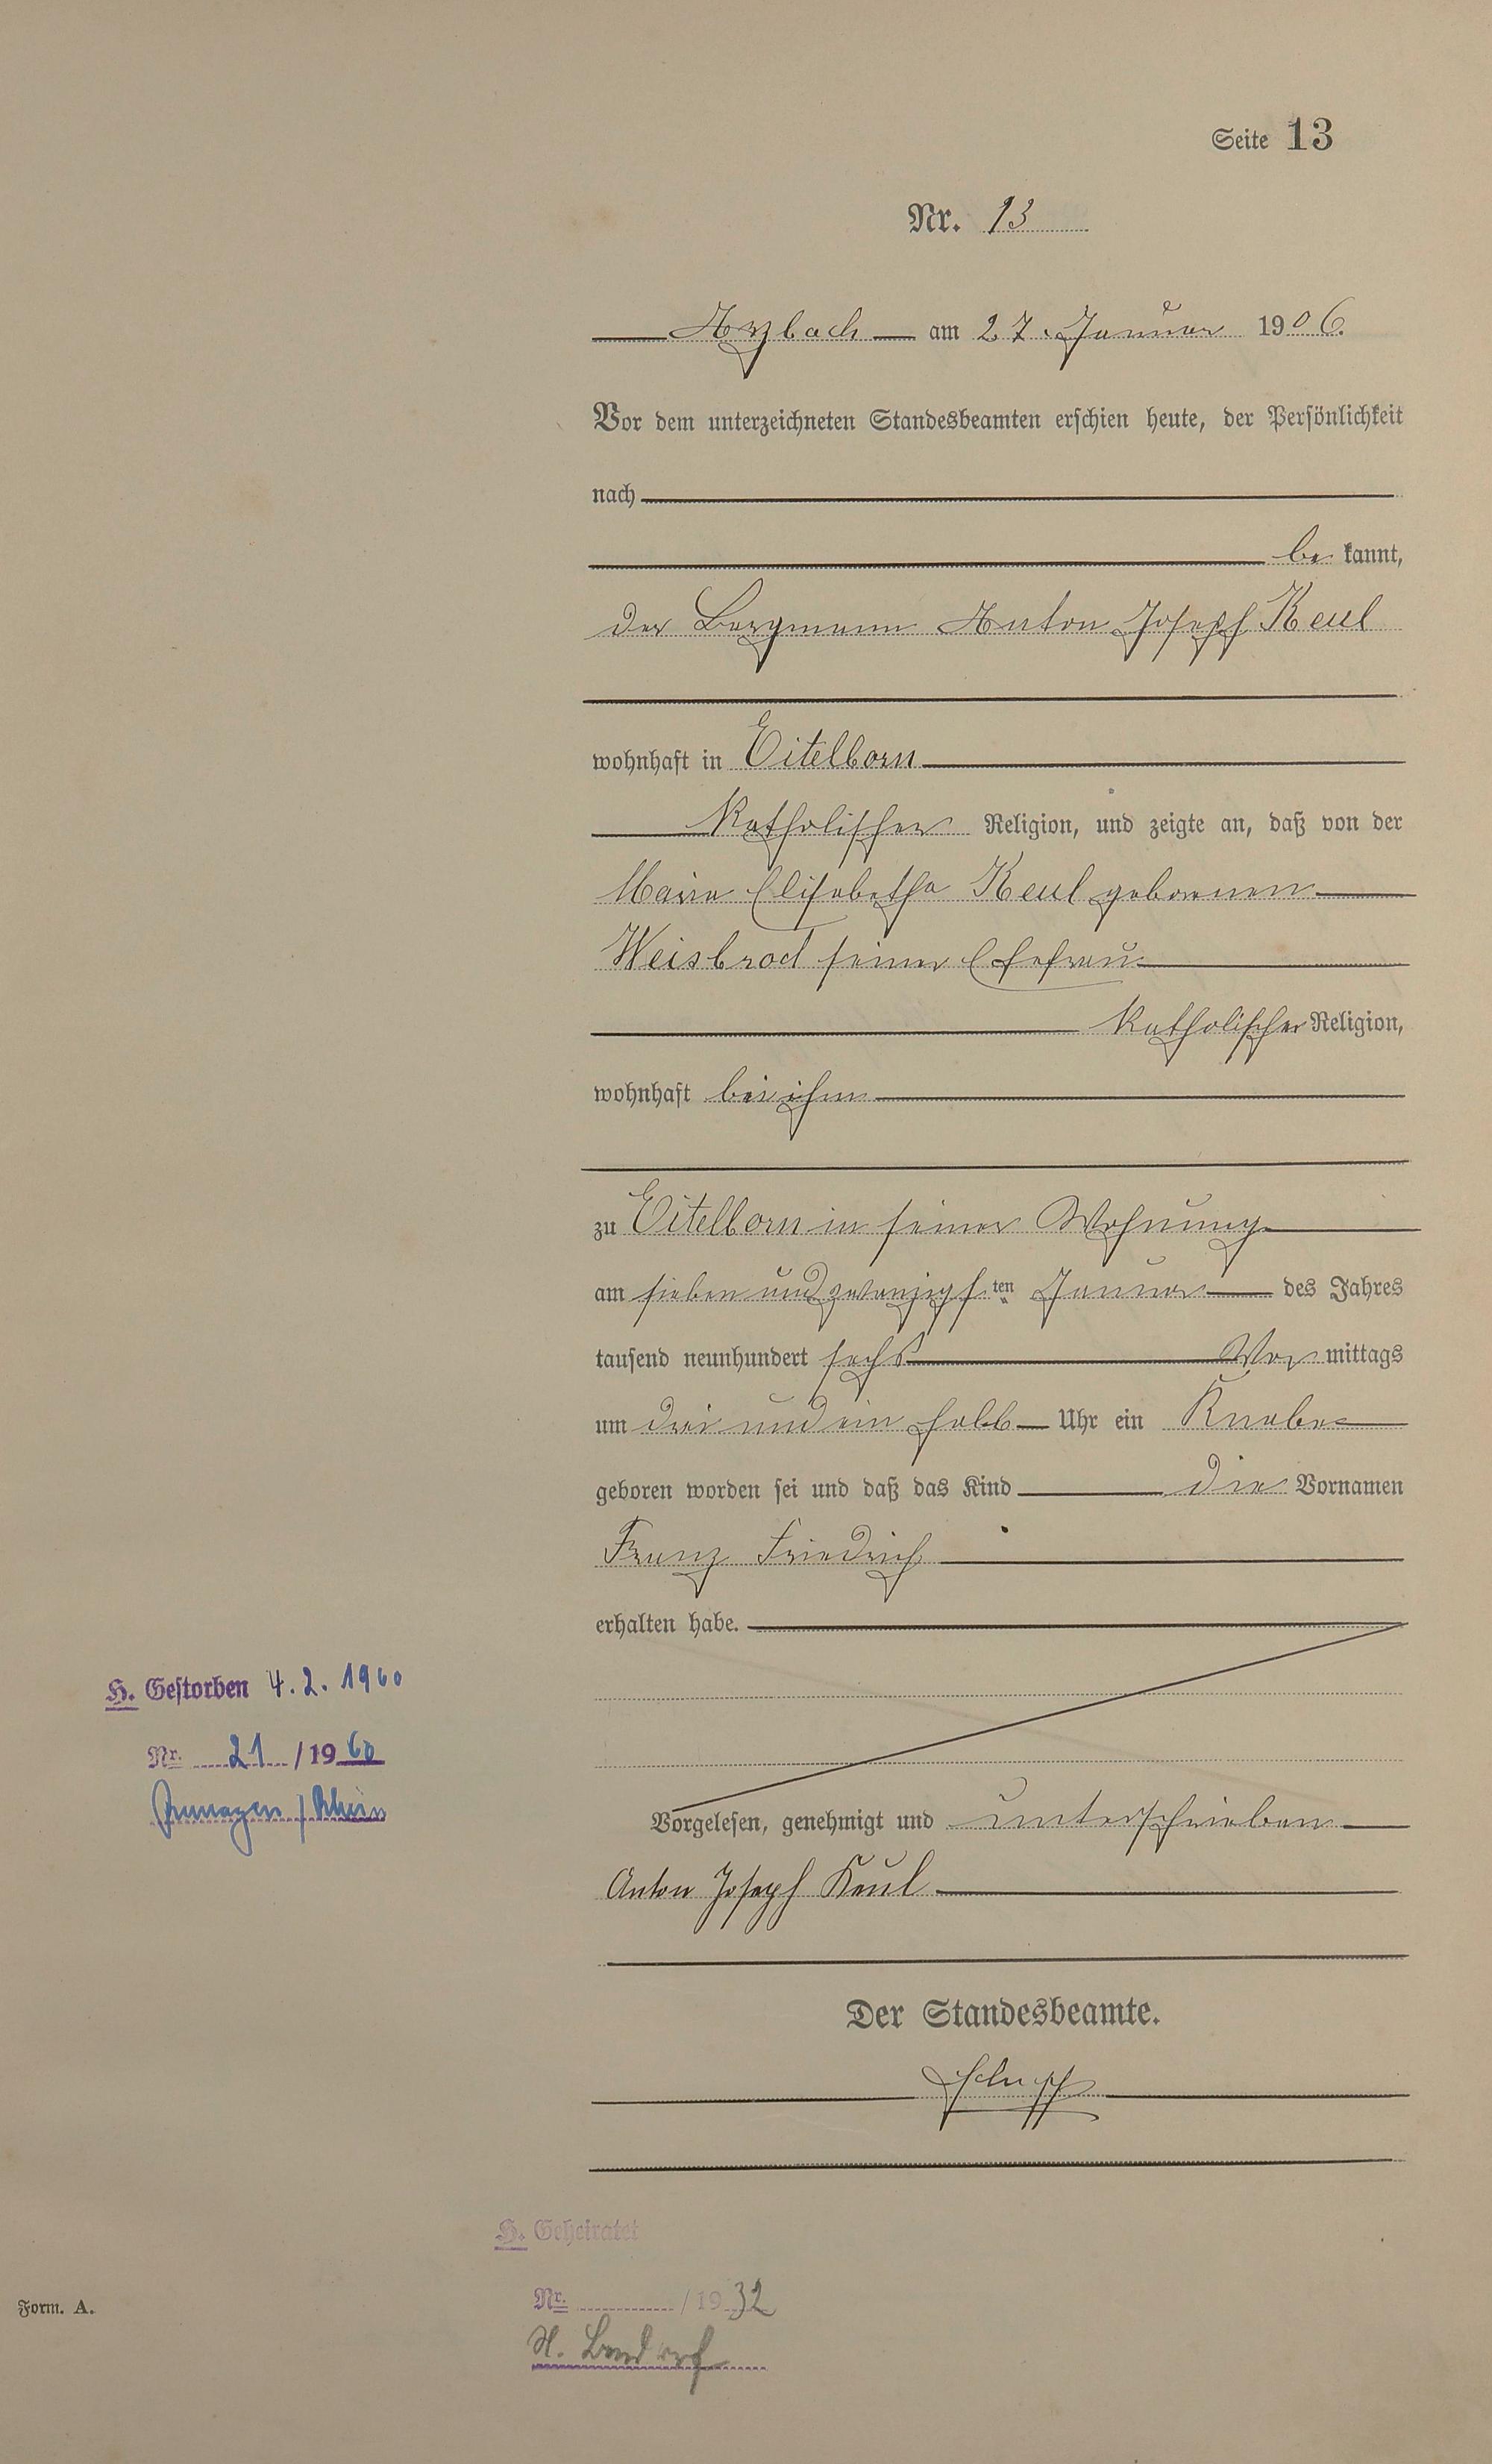 Seite 13
Nr. 13
Arzbach am 27. Januar 1906.
Vor dem unterzeichneten Standesbeamten erschien heute, der Persönlichkeit
nach
be kannt,
der Bergmann Anton Joseph Keul
wohnhaft in Eitelborn
katholischer Religion, und zeigte an, daß von der
Maria Elisabetha Keul geborenen
Weisbrod seiner Ehefrau
katholischer Religion,
wohnhaft bei ihm
zu Eitelborn in seiner Wohnung
am sieben und zwanzigsten Januar des Jahres
tausend neunhundert sechs Vor mittags
um drei und ein halb Uhr ein Knabe
geboren worden sei und daß das Kind die Vornamen
Franz Friedrich
erhalten habe.
H. Gestorben 4.2.1960
Nr. 21 / 1960
/ Rhein
Vorgelesen, genehmigt und unterschrieben
Anton Joseph Keul
Der Standesbeamte.
H. Geheiratet
Nr. / 1932
Form. A.